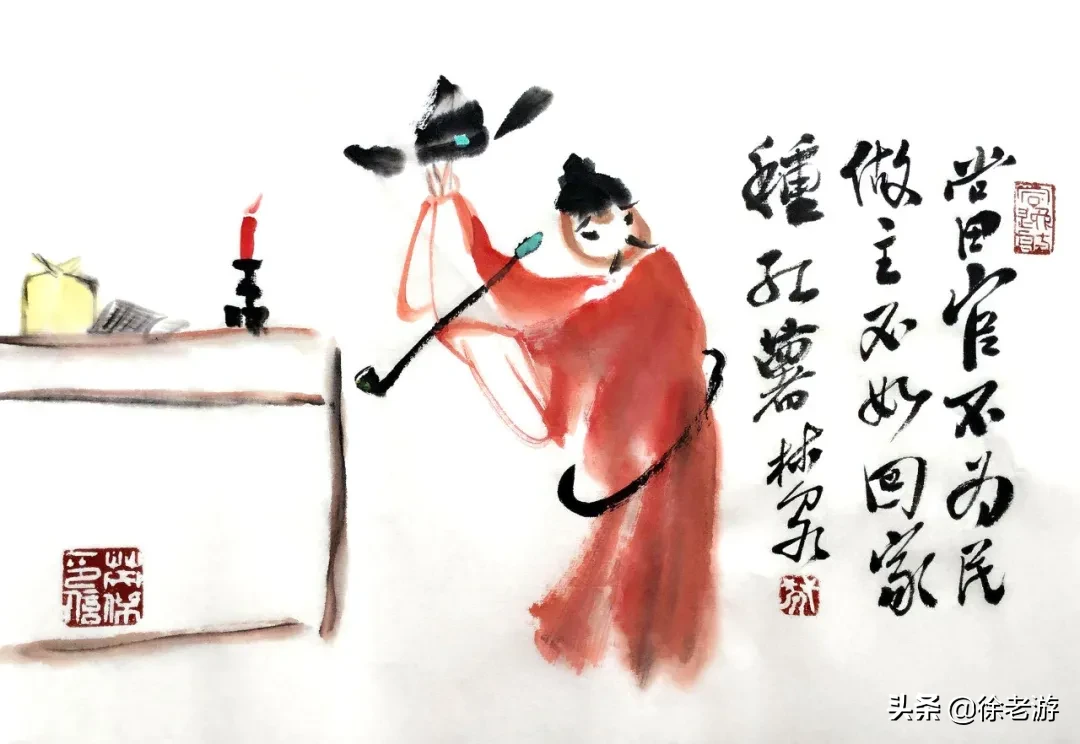 當官不为民
做主不如回家
種红薯 林泉
头条 @徐老游